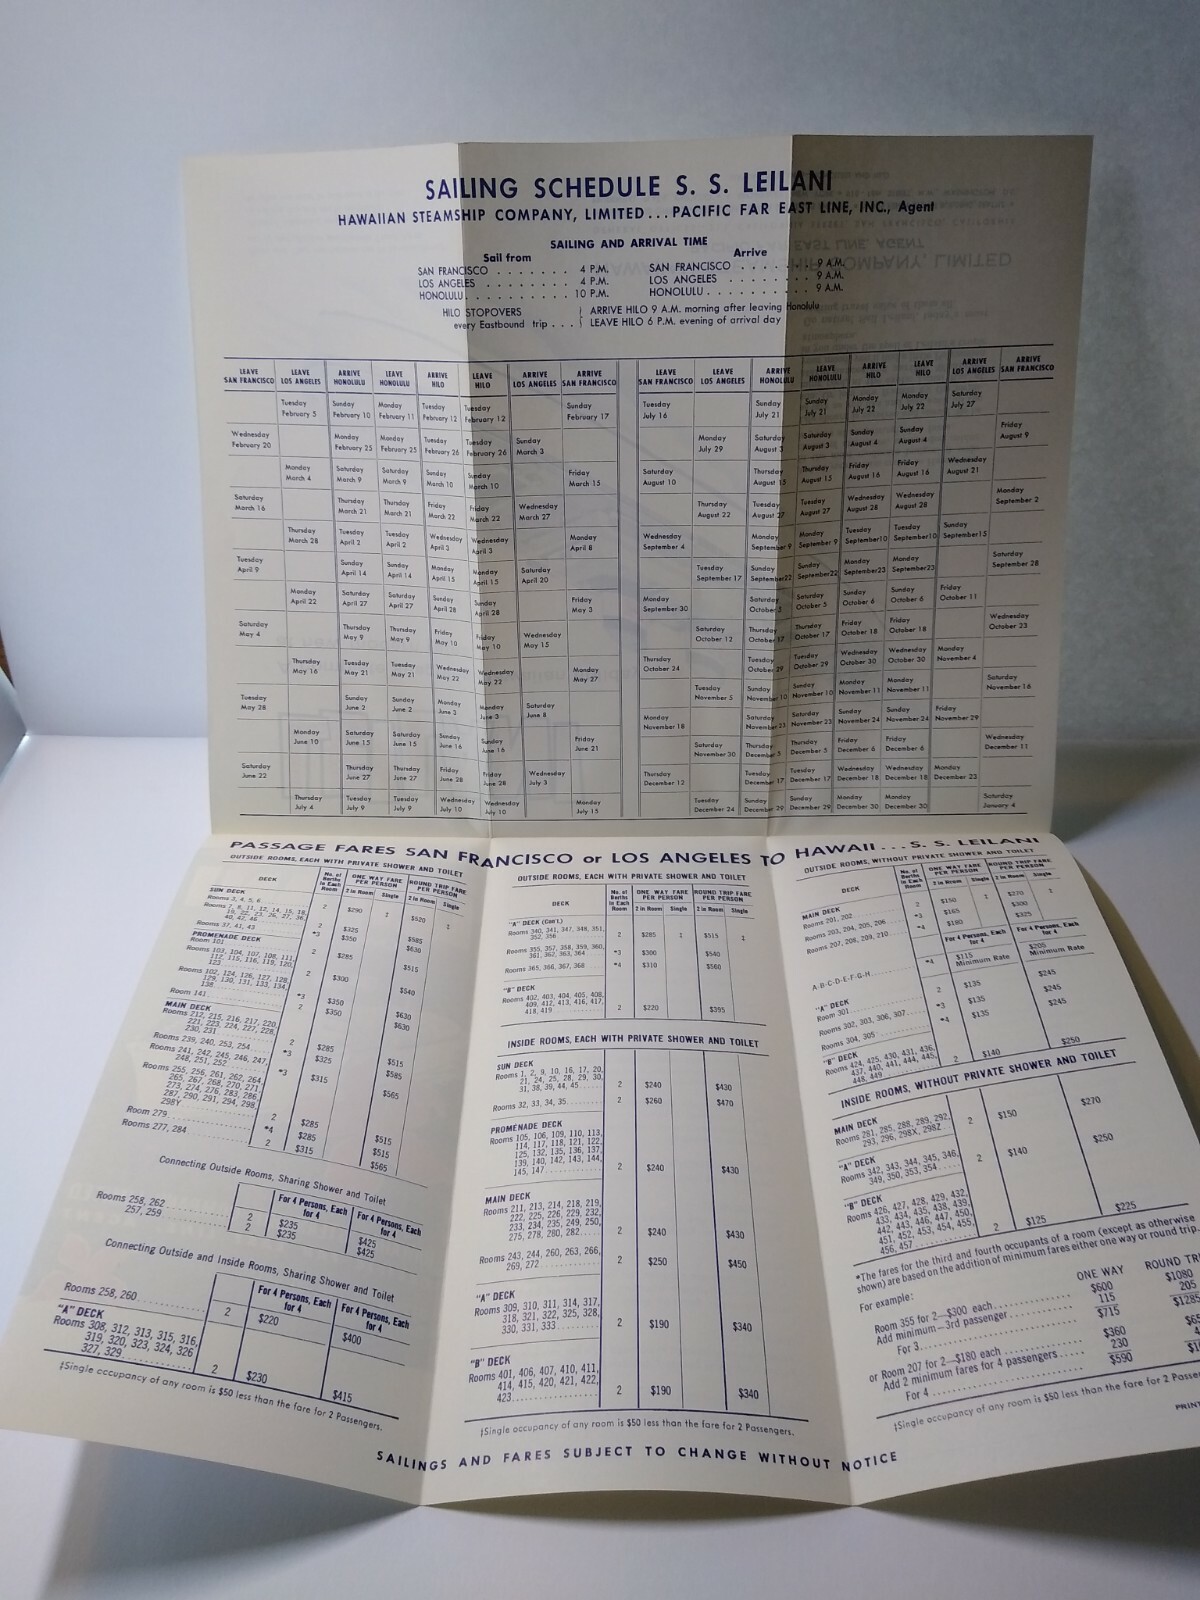 SAILING SCHEDULE S. S. LEILANI
HAWAIIAN STEAMSHIP COMPANY, LIMITED...PACIFIC FAR EAST LINE, INC., Agent
SAILING AND ARRIVAL TIME
Sail from Arrive
SAN FRANCISCO . . . . . . . 4 P.M. SAN FRANCISCO . . . . . . . 9 A.M.
LOS ANGELES . . . . . . . 4 P.M. LOS ANGELES . . . . . . . 9 A.M.
HONOLULU . . . . . . . 10 P.M. HONOLULU . . . . . . . 9 A.M.
HILO STOPOVERS ARRIVE HILO 9 A.M. morning after leaving Honolulu
every Eastbound trip . . . LEAVE HILO 6 P.M. evening of arrival day
LEAVE SAN FRANCISCO LEAVE LOS ANGELES ARRIVE HONOLULU LEAVE HONOLULU ARRIVE HILO LEAVE HILO ARRIVE LOS ANGELES ARRIVE SAN FRANCISCO
Tuesday February 5 Sunday February 10 Monday February 11 Tuesday February 12 Tuesday February 12 Sunday February 17
Wednesday February 20 Monday February 25 Monday February 25 Tuesday February 26 Tuesday February 26 Sunday March 3
Monday March 4 Saturday March 9 Saturday March 9 Sunday March 10 Sunday March 10 Friday March 15
Saturday March 16 Thursday March 21 Thursday March 21 Friday March 22 Friday March 22 Wednesday March 27
Thursday March 28 Tuesday April 2 Tuesday April 2 Wednesday April 3 Wednesday April 3 Monday April 8
Tuesday April 9 Sunday April 14 Sunday April 14 Monday April 15 Monday April 15 Saturday April 20
Monday April 22 Saturday April 27 Saturday April 27 Sunday April 28 Sunday April 28 Friday May 3
Saturday May 4 Thursday May 9 Thursday May 9 Friday May 10 Friday May 10 Wednesday May 15
Thursday May 16 Tuesday May 21 Tuesday May 21 Wednesday May 22 Wednesday May 22 Monday May 27
Tuesday May 28 Sunday June 2 Sunday June 2 Monday June 3 Monday June 3 Saturday June 8
Monday June 10 Saturday June 15 Saturday June 15 Sunday June 16 Sunday June 16 Friday June 21
Saturday June 22 Thursday June 27 Thursday June 27 Friday June 28 Friday June 28 Wednesday July 3
Thursday July 4 Tuesday July 9 Tuesday July 9 Wednesday July 10 Wednesday July 10 Monday July 15
LEAVE SAN FRANCISCO LEAVE LOS ANGELES ARRIVE HONOLULU LEAVE HONOLULU ARRIVE HILO LEAVE HILO ARRIVE LOS ANGELES ARRIVE SAN FRANCISCO
Tuesday July 16 Sunday July 21 Sunday July 21 Monday July 22 Monday July 22 Saturday July 27
Monday July 29 Saturday August 3 Saturday August 3 Sunday August 4 Sunday August 4 Friday August 9
Saturday August 10 Thursday August 15 Thursday August 15 Friday August 16 Friday August 16 Wednesday August 21
Thursday August 22 Tuesday August 27 Tuesday August 27 Wednesday August 28 Wednesday August 28 Monday September 2
Wednesday September 4 Monday September 9 Monday September 9 Tuesday September10 Tuesday September10 Sunday September15
Tuesday September 17 Sunday September22 Sunday September22 Monday September23 Monday September23 Saturday September 28
Monday September 30 Saturday October 5 Saturday October 5 Sunday October 6 Sunday October 6 Friday October 11
Saturday October 12 Thursday October 17 Thursday October 17 Friday October 18 Friday October 18 Wednesday October 23
Thursday October 24 Tuesday October 29 Tuesday October 29 Wednesday October 30 Wednesday October 30 Monday November 4
Tuesday November 5 Sunday November 10 Sunday November 10 Monday November 11 Monday November 11 Saturday November 16
Monday November 18 Saturday November 23 Saturday November 23 Sunday November 24 Sunday November 24 Friday November 29
Saturday November 30 Thursday December 5 Thursday December 5 Friday December 6 Friday December 6 Wednesday December 11
Thursday December 12 Tuesday December 17 Tuesday December 17 Wednesday December 18 Wednesday December 18 Monday December 23
Tuesday December 24 Sunday December 29 Sunday December 29 Monday December 30 Monday December 30 Saturday January 4
PASSAGE FARES SAN FRANCISCO or LOS ANGELES TO HAWAII . . . S. S. LEILANI
OUTSIDE ROOMS, EACH WITH PRIVATE SHOWER AND TOILET
DECK No. of Berths in Each Room ONE WAY FARE PER PERSON 2 in Room Single ROUND TRIP FARE PER PERSON 2 in Room Single
SUN DECK
Rooms 3, 4, 5, 6 2 $290 ‡ $520 ‡
Rooms 7, 8, 11, 12, 14, 15, 18,
19, 22, 23, 26, 27, 36,
40, 42, 46 2 $325 $585
Rooms 37, 41, 43 *3 $350 $630
PROMENADE DECK
Room 101 2 $285 $515
Rooms 103, 104, 107, 108, 111,
112, 115, 116, 119, 120,
123 2 $300 $540
Rooms 102, 124, 126, 127, 128,
129, 130, 131, 133, 134,
138 *3 $350 $630
Room 141 2 $350 $630
MAIN DECK
Rooms 212, 215, 216, 217, 220,
221, 223, 224, 227, 228,
230, 231 2 $285 $515
Rooms 239, 240, 253, 254 *3 $325 $585
Rooms 241, 242, 245, 246, 247,
248, 251, 252 *3 $315 $565
Rooms 255, 256, 261, 262, 264,
265, 267, 268, 270, 271,
273, 274, 276, 283, 286,
287, 290, 291, 294, 298,
298Y 2 $285 $515
Room 279 *4 $285 $515
Rooms 277, 284 2 $315 $565
Connecting Outside Rooms, Sharing Shower and Toilet
For 4 Persons, Each for 4 For 4 Persons, Each for 4
Rooms 258, 262 2 $235 $425
257, 259 2 $235 $425
Connecting Outside and Inside Rooms, Sharing Shower and Toilet
For 4 Persons, Each for 4 For 4 Persons, Each for 4
Rooms 258, 260 2 $220 $400
"A" DECK
Rooms 308, 312, 313, 315, 316,
319, 320, 323, 324, 326
327, 329 2 $230 $415
‡Single occupancy of any room is $50 less than the fare for 2 Passengers.
OUTSIDE ROOMS, EACH WITH PRIVATE SHOWER AND TOILET
DECK No. of Berths in Each Room ONE WAY FARE PER PERSON 2 in Room Single ROUND TRIP FARE PER PERSON 2 in Room Single
"A" DECK (Con't.)
Rooms 340, 341, 347, 348, 351,
352, 356 2 $285 ‡ $515 ‡
Rooms 355, 357, 358, 359, 360,
361, 362, 363, 364 *3 $300 $540
Rooms 365, 366, 367, 368 *4 $310 $560
"B" DECK
Rooms 402, 403, 404, 405, 408,
409, 412, 413, 416, 417,
418, 419 2 $220 $395
INSIDE ROOMS, EACH WITH PRIVATE SHOWER AND TOILET
SUN DECK
Rooms 1, 2, 9, 10, 16, 17, 20,
21, 24, 25, 28, 29, 30,
31, 38, 39, 44, 45 2 $240 $430
Rooms 32, 33, 34, 35 2 $260 $470
PROMENADE DECK
Rooms 105, 106, 109, 110, 113,
114, 117, 118, 121, 122,
125, 132, 135, 136, 137,
139, 140, 142, 143, 144,
145, 147 2 $240 $430
MAIN DECK
Rooms 211, 213, 214, 218, 219,
222, 225, 226, 229, 232,
233, 234, 235, 249, 250,
275, 278, 280, 282 2 $240 $430
Rooms 243, 244, 260, 263, 266,
269, 272 2 $250 $450
"A" DECK
Rooms 309, 310, 311, 314, 317,
318, 321, 322, 325, 328,
330, 331, 333 2 $190 $340
"B" DECK
Rooms 401, 406, 407, 410, 411,
414, 415, 420, 421, 422,
423 2 $190 $340
‡Single occupancy of any room is $50 less than the fare for 2 Passengers.
OUTSIDE ROOMS, WITHOUT PRIVATE SHOWER AND TOILET
DECK No. of Berths in Each Room ONE WAY FARE PER PERSON 2 in Room Single ROUND TRIP FARE PER PERSON 2 in Room Single
MAIN DECK
Rooms 201, 202 2 $150 ‡ $270 ‡
Rooms 203, 204, 205, 206 *3 $165 $300
Rooms 207, 208, 209, 210 *4 $180 $325
For 4 Persons, Each for 4 For 4 Persons, Each for 4
A-B-C-D-E-F-G-H *4 $115 Minimum Rate $205 Minimum Rate
"A" DECK
Room 301 2 $135 $245
Rooms 302, 303, 306, 307 *3 $135 $245
Rooms 304, 305 *4 $135 $245
"B" DECK
Rooms 424, 425, 430, 431, 436,
437, 440, 441, 444, 445,
448, 449 2 $140 $250
INSIDE ROOMS, WITHOUT PRIVATE SHOWER AND TOILET
MAIN DECK
Rooms 281, 285, 288, 289, 292,
293, 296, 298X, 298Z 2 $150 $270
"A" DECK
Rooms 342, 343, 344, 345, 346,
349, 350, 353, 354 2 $140 $250
"B" DECK
Rooms 426, 427, 428, 429, 432,
433, 434, 435, 438, 439,
442, 443, 446, 447, 450,
451, 452, 453, 454, 455,
456, 457 2 $125 $225
*The fares for the third and fourth occupants of a room (except as otherwise
shown) are based on the addition of minimum fares either one way or round trip.
For example: ONE WAY ROUND TRI
Room 355 for 2—$300 each $600 $1080
Add minimum—3rd passenger 115 205
For 3 $715 $1285
or Room 207 for 2—$180 each $360
Add 2 minimum fares for 4 passengers 230
For 4 $590
‡Single occupancy of any room is $50 less than the fare for 2 Passen
PRINT
SAILINGS AND FARES SUBJECT TO CHANGE WITHOUT NOTICE